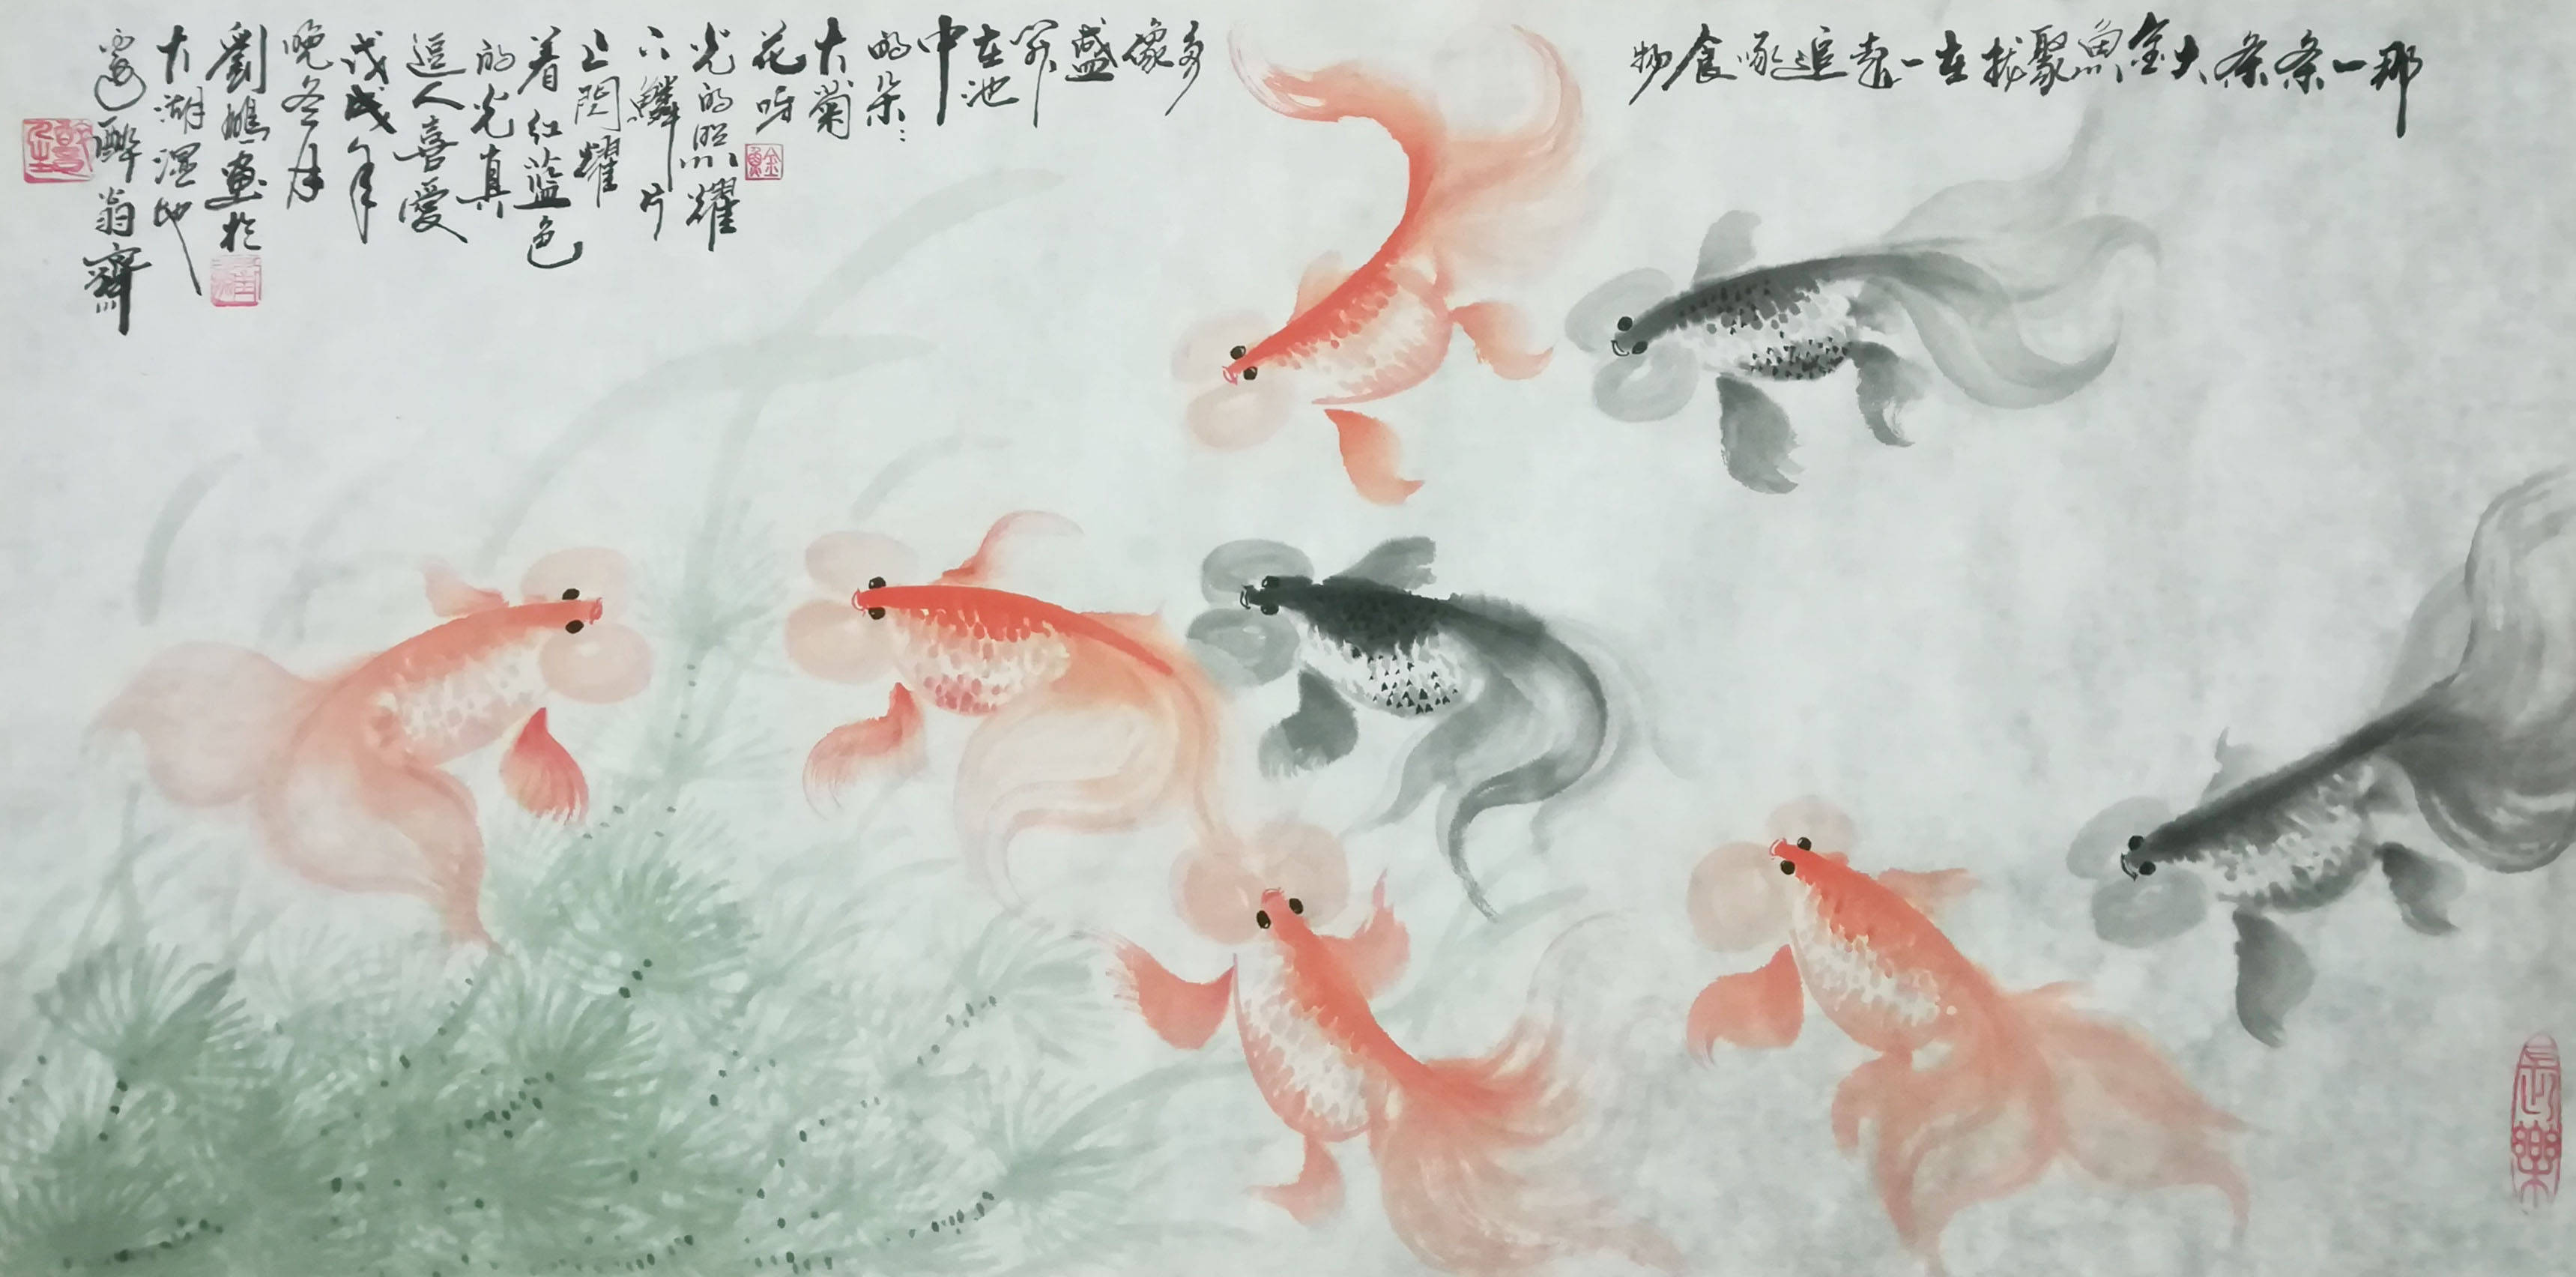 那一条条大金魚聚拢在一起追啄食物
多像盛
在池
中
的朵
大菊
花呀
光的照耀
下鱗片
上閃耀
着红蓝色
的光真
逗人喜愛
戊戌年
晚冬月
劉鵬画於
大湖湿地
邊醉翁齋
金魚
長樂